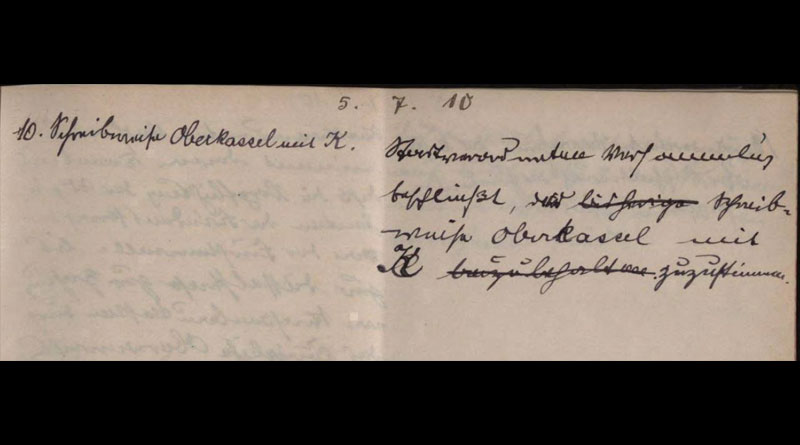 5. 7. 10
10. Schreibweise Oberkassel mit K.
Stadtverordneten Versammlung
beschließt, der bisherige Schreib-
weise Oberkassel mit
K beizubehalten. zuzustimmen.